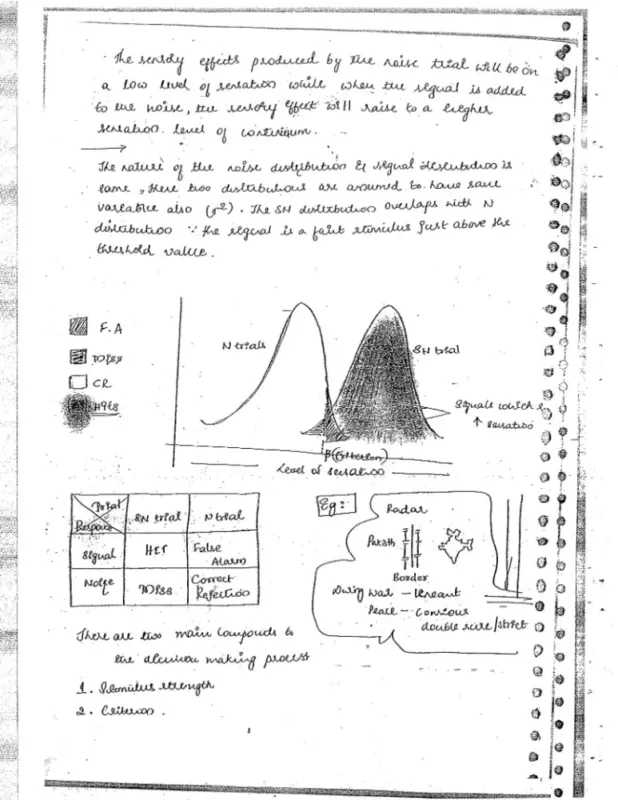 The sensory effects produced by the noise trial will be on
a low level of sensation while when the signal is added
to the noise, the sensory effect will raise to a higher
sensation level of continuum.
The nature of the noise distribution & signal distribution is
same, these two distributions are assumed to have same
variance also (σ²). The SN distribution overlaps with N
distribution ∵ the signal is a faint stimulus just above the
threshold value.
F.A
Miss
CR
Hits
N trials
SN trial
signals which
↑ sensation
β (Criterion)
Level of sensation
Trial
Response
SN trial
N trial
Signal
HIT
False
Alarm
Noise
Miss
Correct
Rejection
Eg:
Radar
Border
During war - lenient
Peace - Conscious
double sure/strict
There are two main compounds to
the decision making process
1. Stimulus strength
2. Criterion.